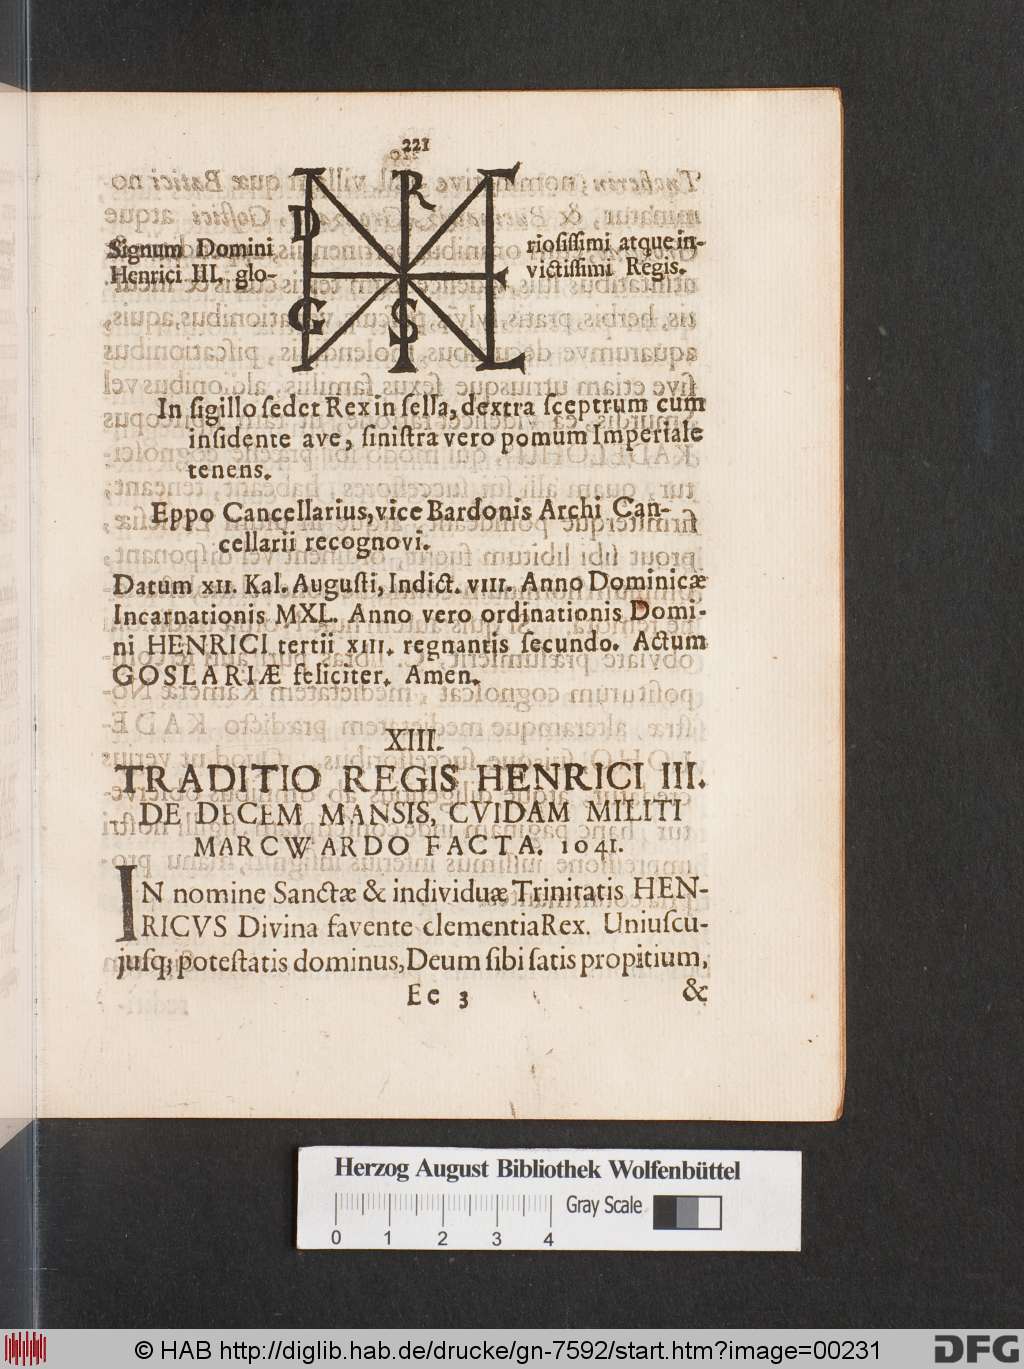 221
D R
Signum Domini riosissimi atque in-
Henrici III. glo- victissimi Regis.
G S
In sigillo sedet Rex in sella, dextra sceptrum cum
insidente ave, sinistra vero pomum Imperiale
tenens.
Eppo Cancellarius, vice Bardonis Archi Can-
cellarii recognovi.
Datum XII. Kal. Augusti, Indict. VIII. Anno Dominicæ
Incarnationis MXL. Anno vero ordinationis Domi-
ni HENRICI tertii XIII. regnantis secundo. Actum
GOSLARIÆ feliciter. Amen.
XIII.
TRADITIO REGIS HENRICI III.
DE DECEM MANSIS, CVIDAM MILITI
MARCWARDO FACTA. 1041.
IN nomine Sanctæ & individuæ Trinitatis HEN-
RICVS Divina favente clementia Rex. Uniuscu-
jusq; potestatis dominus, Deum sibi satis propitium,
Ee 3 &
Herzog August Bibliothek Wolfenbüttel
Gray Scale
0 1 2 3 4
© HAB http://diglib.hab.de/drucke/gn-7592/start.htm?image=00231
DFG